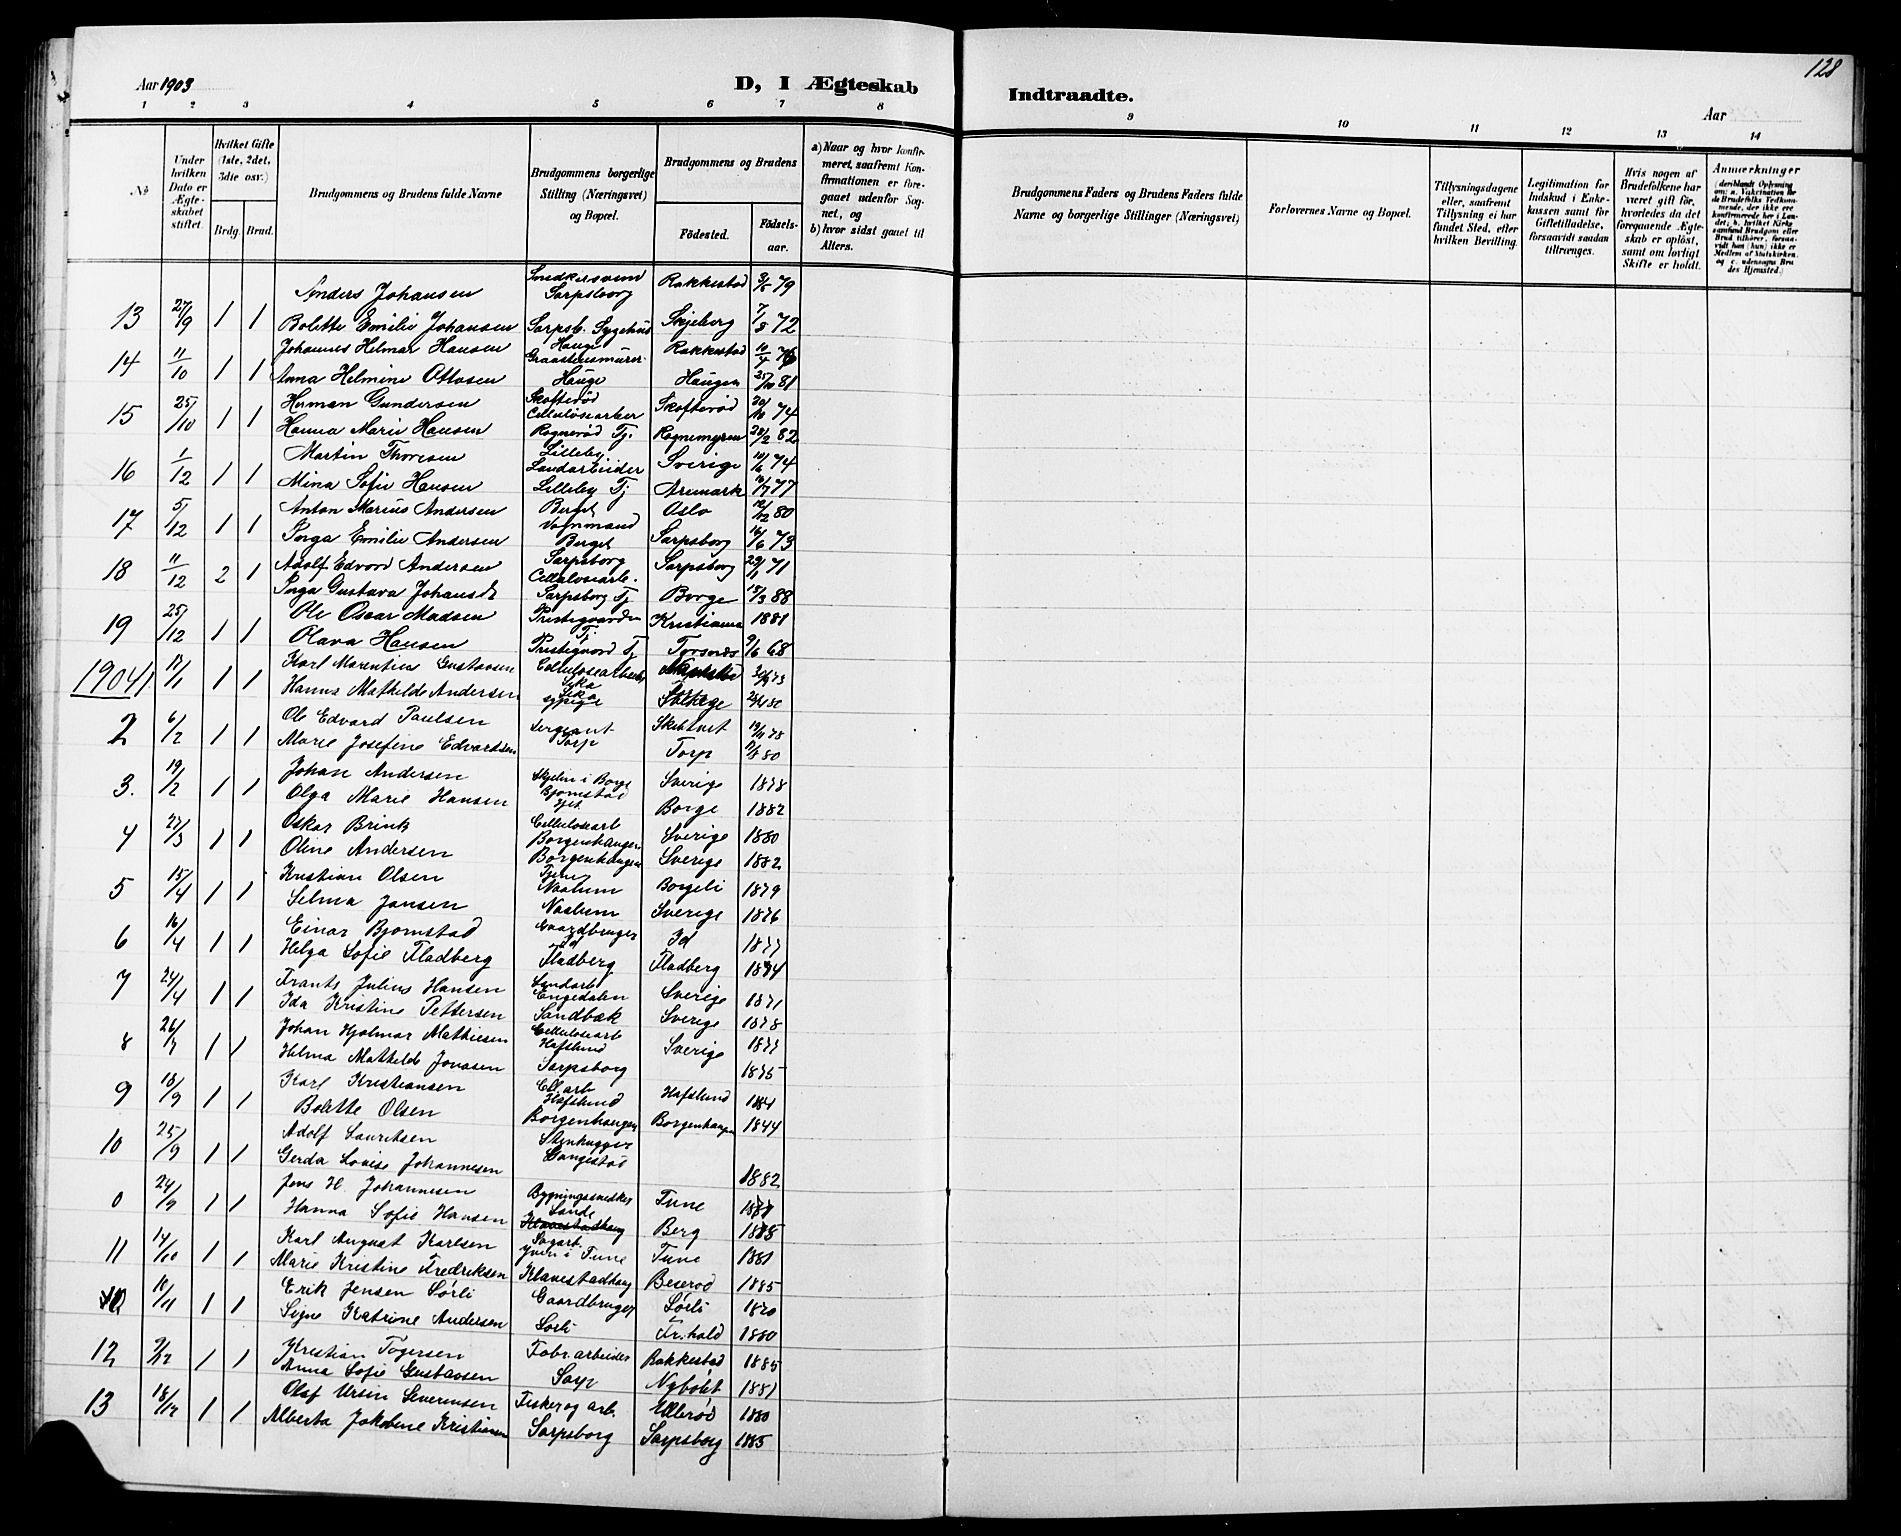 128
Aar 1903
D, I Ægteskab
Indtraadte.
Aar
1 2 3 4 5 6 7 8 9 10 11 12 13 14
No
Under hvilken Dato er Ægteskabet stiftet.
Hvilket Gifte (1ste, 2det, 3die osv.)
Brdg. Brud.
Brudgommens og Brudens fulde Navne
Brudgommens borgerlige Stilling (Næringsvei) og Bopæl.
Brudgommens og Brudens
Fødested.
Fødselsaar.
a) Naar og hvor konfirmeret, saafremt Konfirmationen er foregaaet udenfor Sognet, og
b) hvor sidst gaaet til Alters.
Brudgommens Faders og Brudens Faders fulde Navne og borgerlige Stillinger (Næringsvei)
Forlovernes Navne og Bopæl.
Tillysningsdagene eller, saafremt Tillysning ei har fundet Sted, efter hvilken Bevilling.
Legitimation for Indskud i Enkekassen samt for Giftetilladelse, forsaavidt saadan tiltrænges.
Hvis nogen af Brudefolkene har været gift før, hvorledes da det foregaaende Ægteskab er opløst, samt om lovligt Skifte er holdt.
Anmærkninger (deriblandt Oplysning om: a. Vaccination for de Brudefolks Vedkommende, der ikke ere konfirmerede her i Landet; b. hvilket Kirkesamfund Brudgom eller Brud tilhører, forsaavidt han (hun) ikke er Medlem af Statskirken, og c. udensogns Brudes Hjemsted.)
Anders Johansen Snedkersvenn Sarpsborg Rakkestad 3/5 79
13 27/9 1 1 Bolette Emilie Johansen Sarpsb. Sygehus Skjeberg 7/8 72
Johannes Helmar Hansen Hauge Graastensmurer Rakkestad 10/4 76
14 11/10 1 1 Anna Helmine Ottosen Hauge Haugen 25/10 81
Herman Gundersen Skofterød Celluløsearber Skofterød 20/10 74
15 25/10 1 1 Hanna Marie Hansen Rognerød Tj. Rognemyren 28/2 82
Martin Thoresen Lilleby Landarbeider Sverige 10/6 74
16 1/12 1 1 Mina Sofie Hansen Lilleby Tj Aremark 77
Anton Marius Andersen Berget Vognmand Oslo 12/12 80
17 5/12 1 1 Inga Emilie Andersen Berget Sarpsborg 16/6 73
Adolf Edvard Andersen Sarpsborg Cellulosearb. Sarpsborg 29/11 71
18 11/12 2 1 Inga Gustava Johansdt Sarpsborg Tj Borge 15/3 88
Ole Oscar Madsen Prestegaarden Tj. Kristiania 1881
19 25/12 1 1 Olava Hansen Prestegaard Tj Tysnæs 9/6 68
1904 1 17/1 1 1 Karl Marentius Gustavsen Cellulosearbeider
Hanna Mathilde Andersen
2 6/2 1 1 Ole Edvard Paulsen Sergeant Torp Skibtvet 19/11 78
Marie Josefine Edvardsen Torp 80
3. 19/2 1 1 Johan Andersen Skjelin i Borge Sverige 1878
Olga Marie Hansen Bjørnstad Borge 1882
4 27/3 1 1 Oskar Brink Cellulosearb Borgenhaugen Sverige 1880
Oline Andersen Borgenhaugen Sverige 1882
5 15/4 1 1 Kristian Olsen Naalum Borgeli 1879
Selma Jansen Naalum Sverige 1876
6 16/4 1 1 Einar Bjørnstad Gaardbruger Id Id 1877
Helga Sofie Fladberg Fladberg Fladberg 1874
7 24/4 1 1 Frants Julius Hansen Landarb Engedalen Sverige 1871
Ida Kristine Pettersen Sandbæk Sverige 1878
8 26/7 1 1 Johan Hjalmar Mathiesen Cellulosearb Hafslund Sverige 1877
Helma Mathilde Jonasen Sarpsborg 1875
9 18/9 1 1 Karl Kristiansen Cell.arb Hafslund Hafslund 1884
Bolette Olsen Borgenhaugen Borgenhaugen 1844
10 25/9 1 1 Adolf Lauritsen Stenhugger Langestad
Gerda Lovise Johannesen 1882
0 24/9 1 1 Jens H. Johannesen Bygningssnedker Sande Tune
Hanna Sofie Hansen Klavestadhaug Berg 1885
11 14/10 1 1 Karl August Karlsen Sagarb. Yven i Tune Tune 1881
Marie Kristine Fredriksen Klavestadhaug Beserød 1885
18/11 1 1 Erik Jensen Sørli Gaardbruger Sørli 1870
Signe Katrine Andersen Sørli Fr.hald 1880
12 9/12 1 1 Kristian Togersen Fabr.arbeider Rakkestad 1885
Anna Sofie Gustavsen Sarp Nybølet 1881
13 18/12 1 1 Olaf Ursin Severinsen Fisker og arb. Ellerød 1880
Alberta Jakobine Kristiansen Sarpsborg Sarpsborg 1885